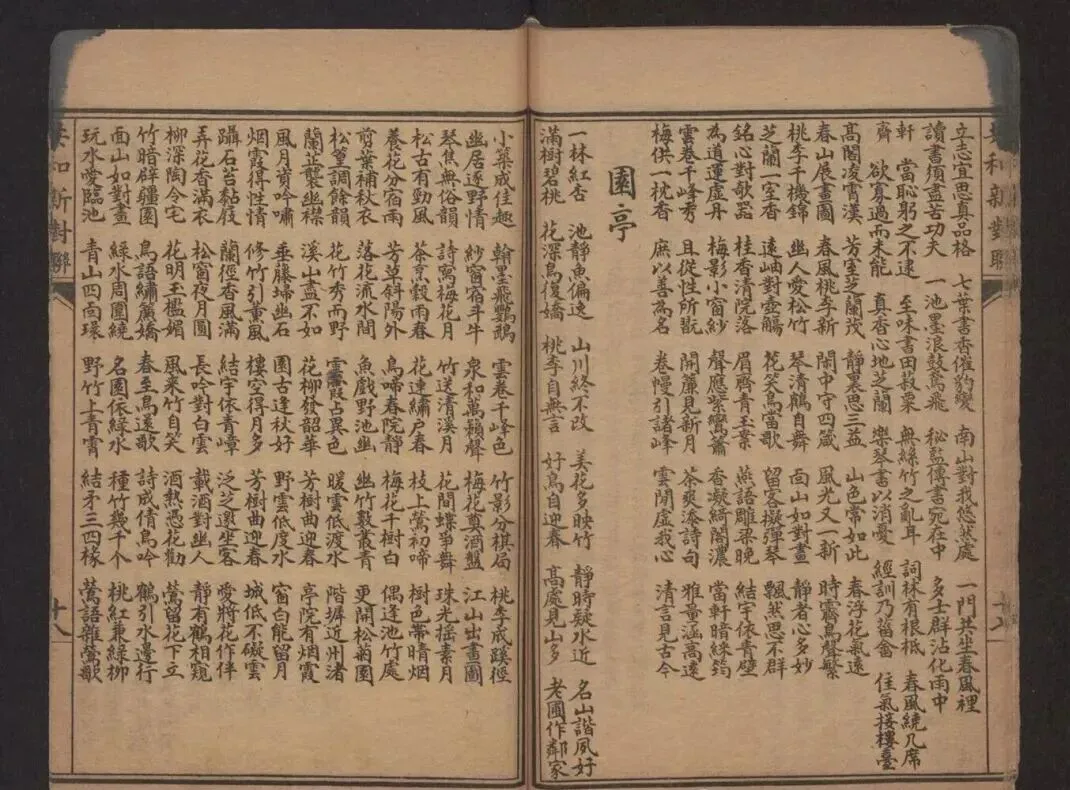 和新對聯
立志宜思真品格 七葉書香催豹變 南山對我悠然處 一門共坐春風裡
讀書須盡苦功夫 一池墨浪鼓鳶飛 秘監傳書宛在中 多士群沾化雨中
軒 當恥躬之不逮 至味書田菽粟 無絲竹之亂耳 詞林有根柢 春風繞几席
齋 欲寡過而未能 真香心地芝蘭 樂琴書以消憂 經訓乃菑畬 佳氣接樓臺
高閣凌霄漢 芳室芝蘭茂 靜裏思三益 山色常如此 春浮花氣遠
春山展畫圖 春風桃李新 閒中守四箴 風光又一新 時霽鳥聲繁
桃李千機錦 幽人愛松竹 琴清鶴自舞 面山如對畫 靜者心多妙
芝蘭一室香 遠岫對壺觴 花笑鳥當歌 留客擬彈琴 飄然思不群
銘心對歌器 桂香清院落 眉齊青玉案 燕語雕梁晚 結宇依青壁
為道運虛丹 梅影小窗紗 聲應紫鸞簫 香凝綺閣濃 當軒暗綠筠
雲卷千峰秀 且從性所翫 開簾見新月 茶爽添詩句 雅量涵高遠
梅供一枕香 庶以善為名 卷幔引諸峰 雲閒虛我心 清言見古今
園亭
一林紅杏 池靜魚偏逸 山川終不改 美花多映竹 靜時疑水近 名山諧夙好
滿樹碧桃 花深鳥復嬌 桃李自無言 好鳥自迎春 高處見山多 老圃作鄰家
小築成佳趣 翰墨飛鸚鵡 雲卷千峰色 竹影分棋局 桃李成蹊徑
幽居逐野情 紗窗宿斗牛 泉和萬籟聲 梅花奠酒盤 江山出畫圖
琴焦無俗韻 詩寫梅花月 竹送清溪月 花間蝶爭舞 珠光搖素月
松古有勁風 茶烹穀雨春 花連繡戶春 枝上鶯初啼 樹色帶晴烟
養花分宿雨 芳草斜陽外 鳥啼春院靜 梅花千樹白 偶逢池竹處
剪葉補秋衣 落花流水間 魚戲野池幽 幽竹數叢青 更開松菊園
松篁調餘韻 花竹秀而野 雲霞占異色 暖雲低渡水 階墀近州渚
蘭芷襲幽襟 溪山盡不如 花柳發韶華 芳樹曲迎春 亭院有烟霞
風月資吟嘯 垂藤掃幽石 園古逢秋好 野雲低度水 窗白能留月
烟霞得性情 修竹引薰風 樓空得月多 芳樹曲迎春 城低不礙雲
躡石苔黏屐 蘭徑香風滿 結宇依青嶂 泛芝邀坐客 愛將花作伴
弄花香滿衣 松窗夜月圓 長吟對白雲 載酒對幽人 靜有鶴相窺
柳深陶令宅 花明玉檻媚 風來竹自笑 酒熟憑花勸 鶯留花下立
竹暗辟疆園 鳥語繡廣嬌 春至鳥還歌 詩成倩鳥吟 鶴引水邊行
面山如對畫 綠水周圍繞 名園依綠水 種竹幾千个 桃紅兼綠柳
玩水愛臨池 青山四面環 野竹上青霄 結矛三四椽 鶯語雜鶯歌
共和新對聯
十八